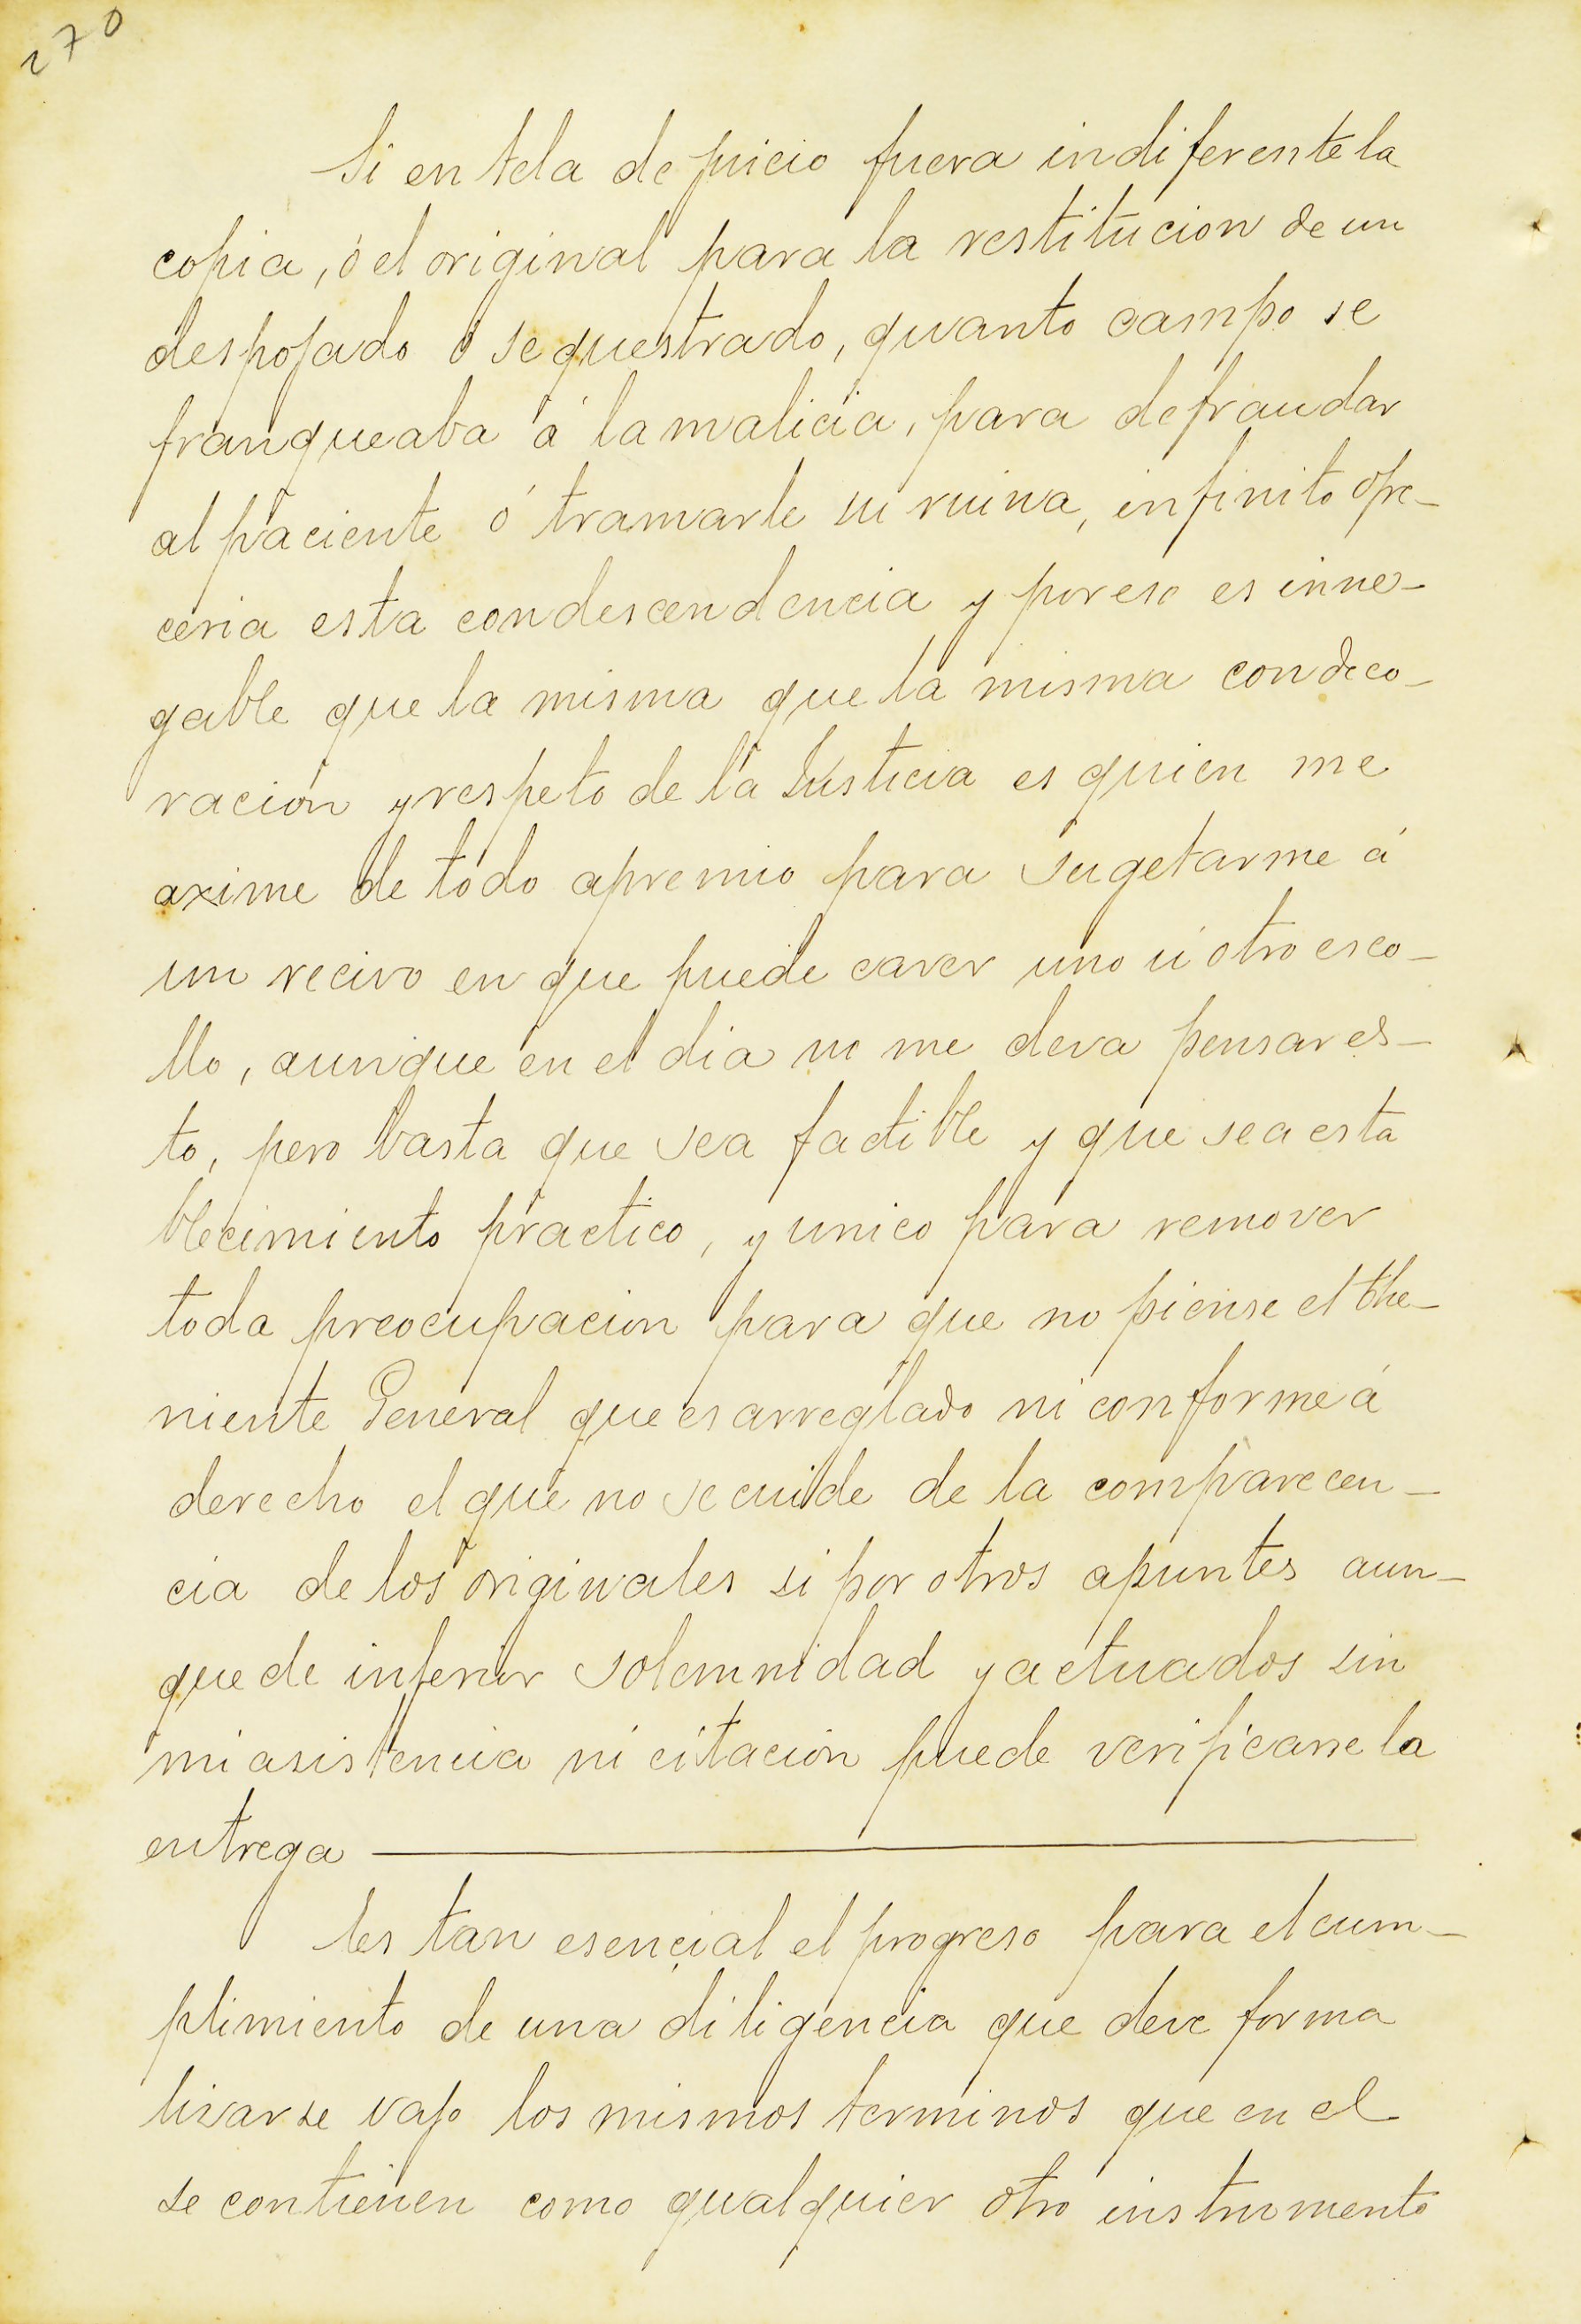 270
Si en tela de juicio fuera indiferente la
copia, ó el original para la restitucion de un
despojado ó sequestrado, quanto campo se
franqueaba á la malicia, para defraudar
al paciente ó tramarle su ruina, infinito ofre-
ceria esta condescendencia y por eso es inne-
gable que la misma que la misma condeco-
ración y respeto de la Justicia es quien me
axime de todo apremio para sugetarme á
un recivo en que puede caver uno ú otro esco-
llo, aunque en el dia no me deva pensar es-
to, pero basta que sea factible y que sea esta
blecimiento practico, y unico para remover
toda preocupacion para que no piense el the-
niente General que es arreglado ni conforme á
derecho el que no se cuide de la comparecen-
cia de los originales si por otros apuntes aun-
que de inferir solemnidad y actuados sin
mi asistencia ni citación puede verificarse la
entrega
Es tan esencial el progreso para el cum-
plimiento de una diligencia que deve forma
lizarse vajo los mismos terminos que en el
se contienen como qualquier otro instrumento